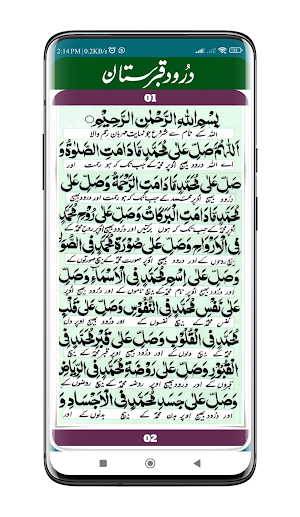 2:14 PM | 0.2KB/s
درود قبرستان
01
بِسْمِ اللهِ الرَّحْمٰنِ الرَّحِيْمِ
اللہ کے نام سے شروع جو نہایت مہربان رحم والا
اَللّٰهُمَّ صَلِّ عَلٰى مُحَمَّدٍ مَّا دَامَتِ الصَّلٰوةُ وَ
اے اللہ درود بھیج اوپر محمدؐ کے جب تک کہ ہو رحمت اور
صَلِّ عَلٰى مُحَمَّدٍ مَّا دَامَتِ الرَّحْمَةُ وَصَلِّ عَلٰى
درود بھیج اوپر محمدؐ کے جب تک کہ ہو رحمت اور
مُحَمَّدٍ مَّا دَامَتِ الْبَرَكَاتُ وَصَلِّ عَلٰى رُوْحِ مُحَمَّدٍ
فِى الْاَرْوَاحِ وَصَلِّ عَلٰى صُوْرَةِ مُحَمَّدٍ فِى الصُّوَرِ
بیچ روحوں کے اور درود بھیج اوپر صورت محمدؐ کے بیچ صورتوں کے
وَصَلِّ عَلٰى اسْمِ مُحَمَّدٍ فِى الْاَسْمَآءِ وَصَلِّ
اور درود بھیج اوپر نام محمدؐ کے بیچ ناموں کے اور درود بھیج
عَلٰى نَفْسِ مُحَمَّدٍ فِى النُّفُوْسِ وَصَلِّ عَلٰى قَلْبِ
مُحَمَّدٍ فِى الْقُلُوْبِ وَصَلِّ عَلٰى قَبْرِ مُحَمَّدٍ فِى
محمدؐ کے بیچ دلوں کے اور درود بھیج اوپر قبر محمدؐ کے بیچ
الْقُبُوْرِ وَصَلِّ عَلٰى رَوْضَةِ مُحَمَّدٍ فِى الرِّيَاضِ
قبروں کے اور درود بھیج اوپر روضہ محمدؐ کے بیچ روضوں کے
وَصَلِّ عَلٰى جَسَدِ مُحَمَّدٍ فِى الْاَجْسَادِ وَ
اور درود بھیج اوپر بدن محمدؐ کے بیچ بدنوں کے اور
02